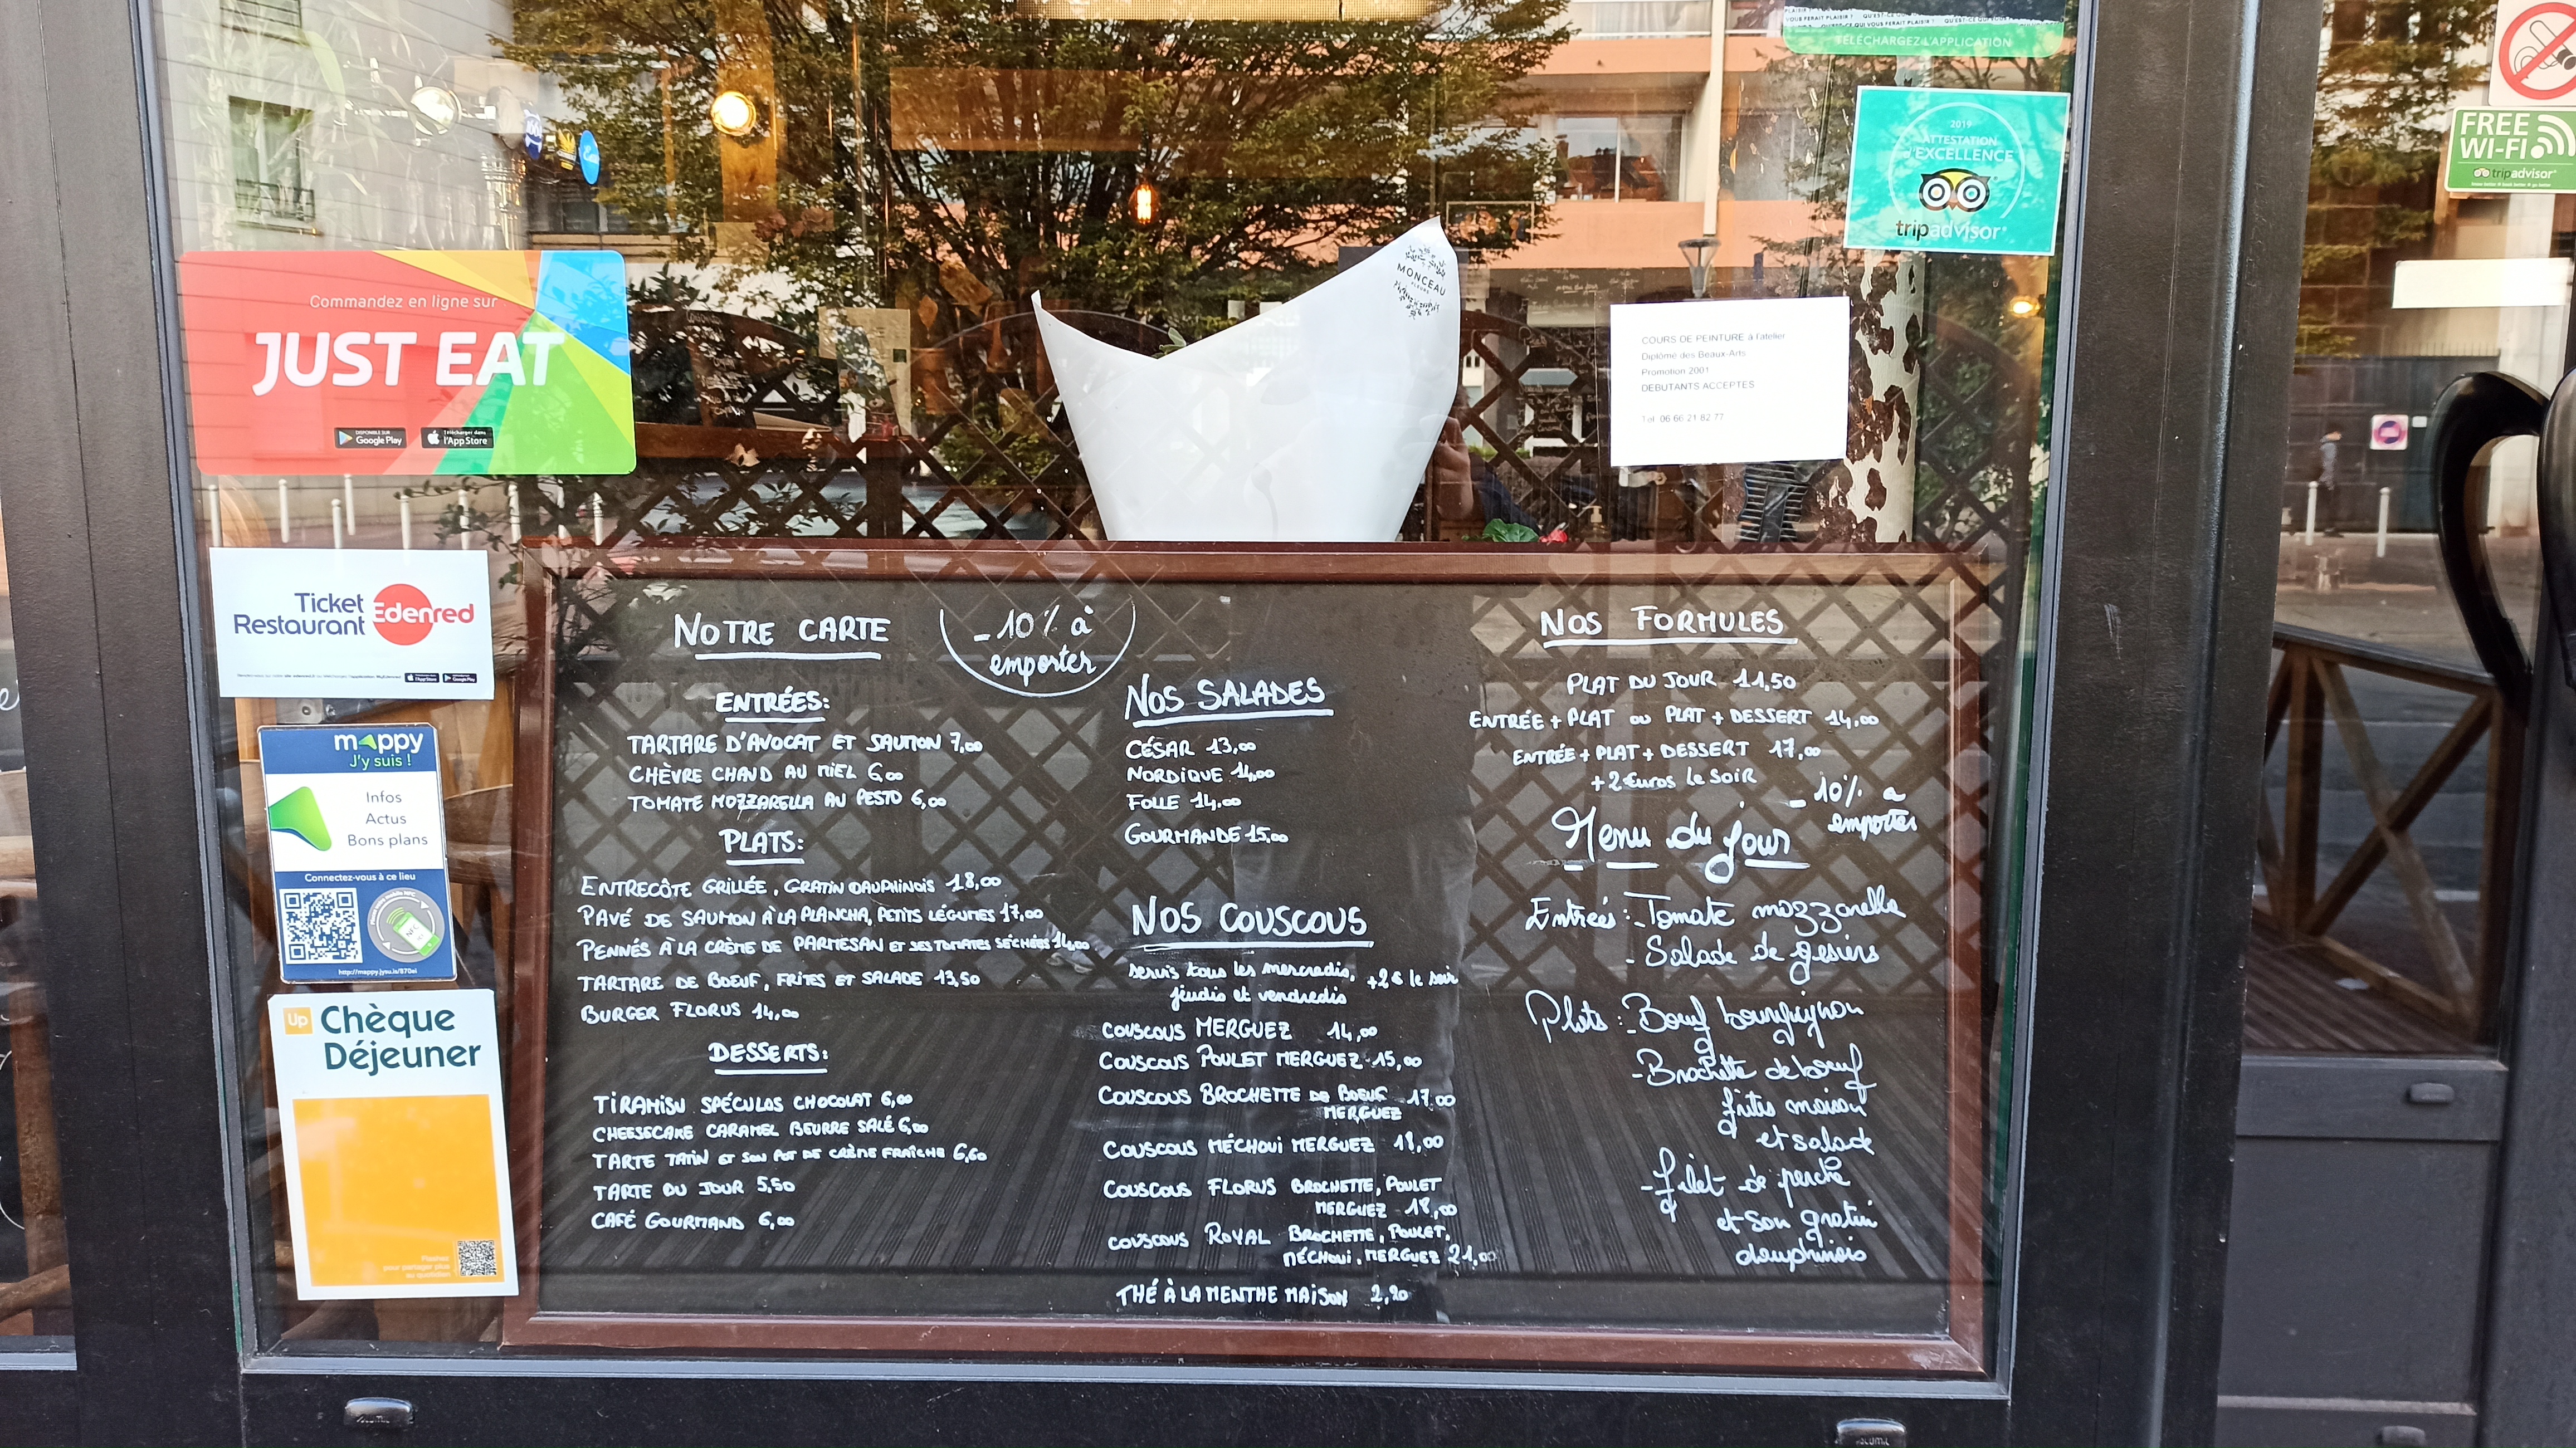 VOUS FERAIT PLAISIR ? QU'EST-CE QUI VOUS FERAIT PLAISIR ?
TÉLÉCHARGEZ L'APPLICATION
2019
ATTESTATION
d'EXCELLENCE
tripadvisor
FREE
WI-FI
tripadvisor
Commandez en ligne sur
JUST EAT
DISPONIBLE SUR
Google Play
Télécharger dans
l'App Store
MONCEAU
FLEURS
COURS DE PEINTURE à l'atelier
Diplômé des Beaux-Arts
Promotion 2001
DEBUTANTS ACCEPTES
Tel 06 66 21 82 77
Ticket
Restaurant
Edenred
mappy
J'y suis !
Infos
Actus
Bons plans
Connectez-vous à ce lieu
NFC
http://mappy.jysu.is/870ei
Up
Chèque
Déjeuner
Flashez
pour partager plus
au quotidien
NOTRE CARTE
-10% à
emporter
ENTRÉES:
TARTARE D'AVOCAT ET SAUMON 7,00
CHÈVRE CHAUD AU MIEL 6,00
TOMATE MOZZARELLA AU PESTO 6,00
PLATS:
ENTRECÔTE GRILLÉE, GRATIN DAUPHINOIS 18,00
PAVÉ DE SAUMON À LA PLANCHA, PETITS LÉGUMES 17,00
PENNÉS À LA CRÈME DE PARMESAN ET SES TOMATES SÉCHÉES 14,00
TARTARE DE BOEUF, FRITES ET SALADE 13,50
BURGER FLORUS 14,00
DESSERTS:
TIRAMISU SPÉCULOS CHOCOLAT 6,00
CHEESECAKE CARAMEL BEURRE SALÉ 6,00
TARTE TATIN ET SON POT DE CRÈME FRAÎCHE 6,60
TARTE DU JOUR 5,50
CAFÉ GOURMAND 6,00
NOS SALADES
CÉSAR 13,00
NORDIQUE 14,00
FOLLE 14,00
GOURMANDE 15,00
NOS COUSCOUS
servis tous les mercredis,
jeudis et vendredis
+2€ le soir
COUSCOUS MERGUEZ 14,00
COUSCOUS POULET MERGUEZ 15,00
COUSCOUS BROCHETTE DE BOEUF
MERGUEZ 17,00
COUSCOUS MÉCHOUI MERGUEZ 18,00
COUSCOUS FLORUS BROCHETTE, POULET
MERGUEZ 18,00
COUSCOUS ROYAL BROCHETTE, POULET,
MÉCHOUI, MERGUEZ 21,00
THÉ À LA MENTHE MAISON 2,20
NOS FORMULES
PLAT DU JOUR 11,50
ENTRÉE + PLAT OU PLAT + DESSERT 14,00
ENTRÉE + PLAT + DESSERT 17,00
+2 Euros le SOIR
-10% a
emporter
Menu du jour
Entrées: - Tomate mozzarella
- Salade de gesiers
Plats: - Boeuf bourguignon
- Brochette de boeuf
frites maison
et salade
- filet de perche
et son gratin
dauphinois